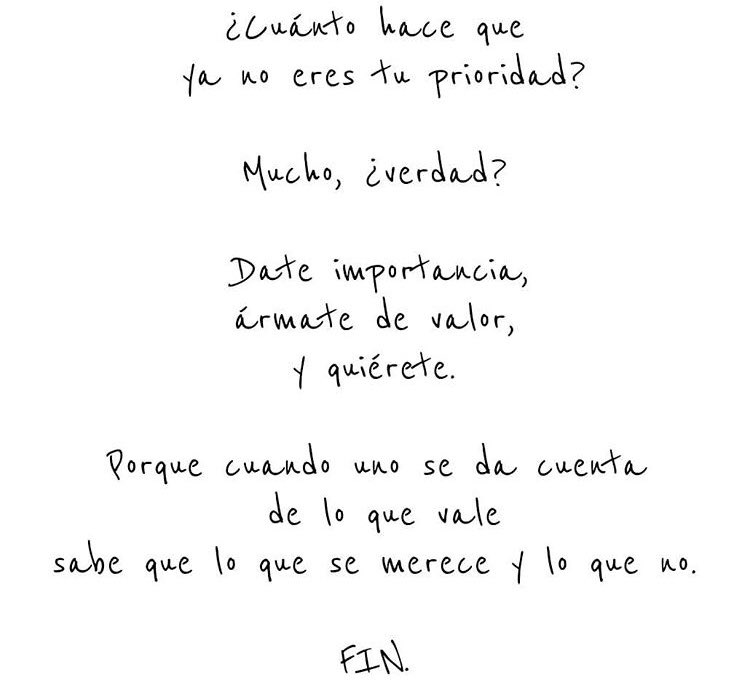 ¿Cuánto hace que
ya no eres tu prioridad?
Mucho, ¿verdad?
Date importancia,
ármate de valor,
y quiérete.
Porque cuando uno se da cuenta
de lo que vale
sabe que lo que se merece y lo que no.
FIN.